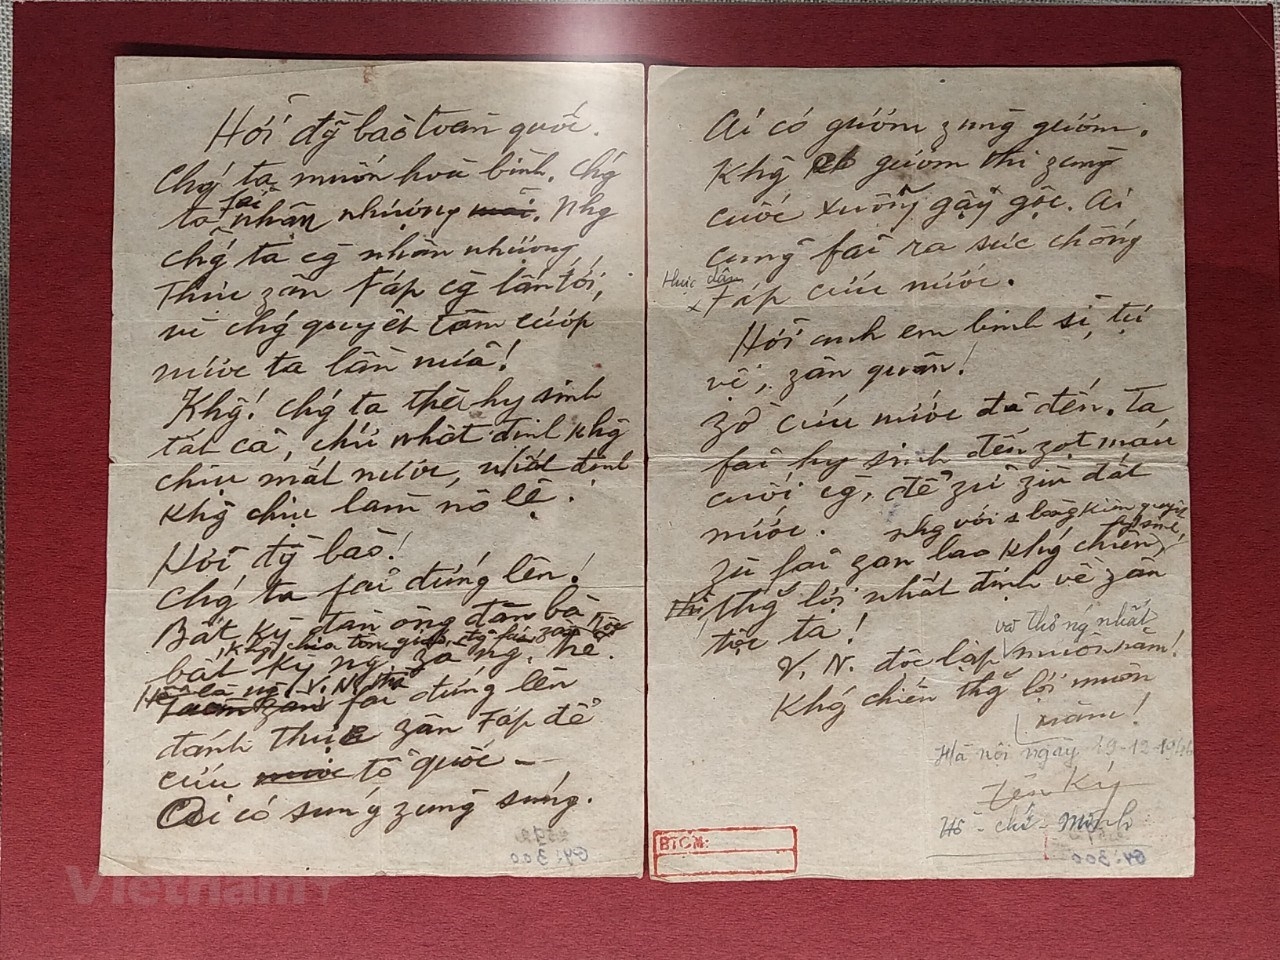 Hỡi đỹ bào toàn quốc.
Chý ta muốn hoà bình. Chý
ta fải nhân nhượng. Nhg
chý ta cg̃ nhân nhượng
Thực zân Fáp cg̃ lấn tới,
vì chý quyết tâm cướp
nước ta lần nữa!
Khỹ! Chý ta thà hy sinh
tất cả, chứ nhất định khỹ
chịu mất nước, nhất định
khỹ chịu làm nô lệ!
Hỡi đỹ bào!
Chý ta fải đứng lên!
Bất kỳ đàn ông đàn bà
, khg chia tôn giáo, đg fái, zân tộc
bất kỳ ng zà ng. trẻ.
Hễ là ng V. N. thì
fải đứng lên
đánh thực zân Fáp để
cứu tổ quốc –
Ai có súng zùng súng.
Ai có gươm zùng gươm.
Khỹ có gươm thì zùng
cuốc xuổng gậy gộc. Ai
cũng fải ra sức chống
thực dân
x Fáp cứu nước.
Hỡi anh em binh sĩ, tự
vệ, zân quân!
Zờ cứu nước đã đến. Ta
fải hy sinh đến zọt máu
cuối cg̀, để zữ zìn đất
nước.
nhg với 1 lòng kiên quyết
hy sinh,
zù fải zan lao khý chiến,
thắg lợi nhất định về zân
tộc ta!
và thống nhất
V. N. độc lập muôn năm!
Khý chiến thắg lợi muôn
năm!
Hà nội ngày 19-12-1946
Hồ - chí - Minh
BTCM:
Gy. 300
Gy. 300
Vietnam+